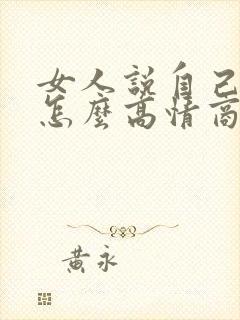 女人説自己
怎麼高情商
黃永